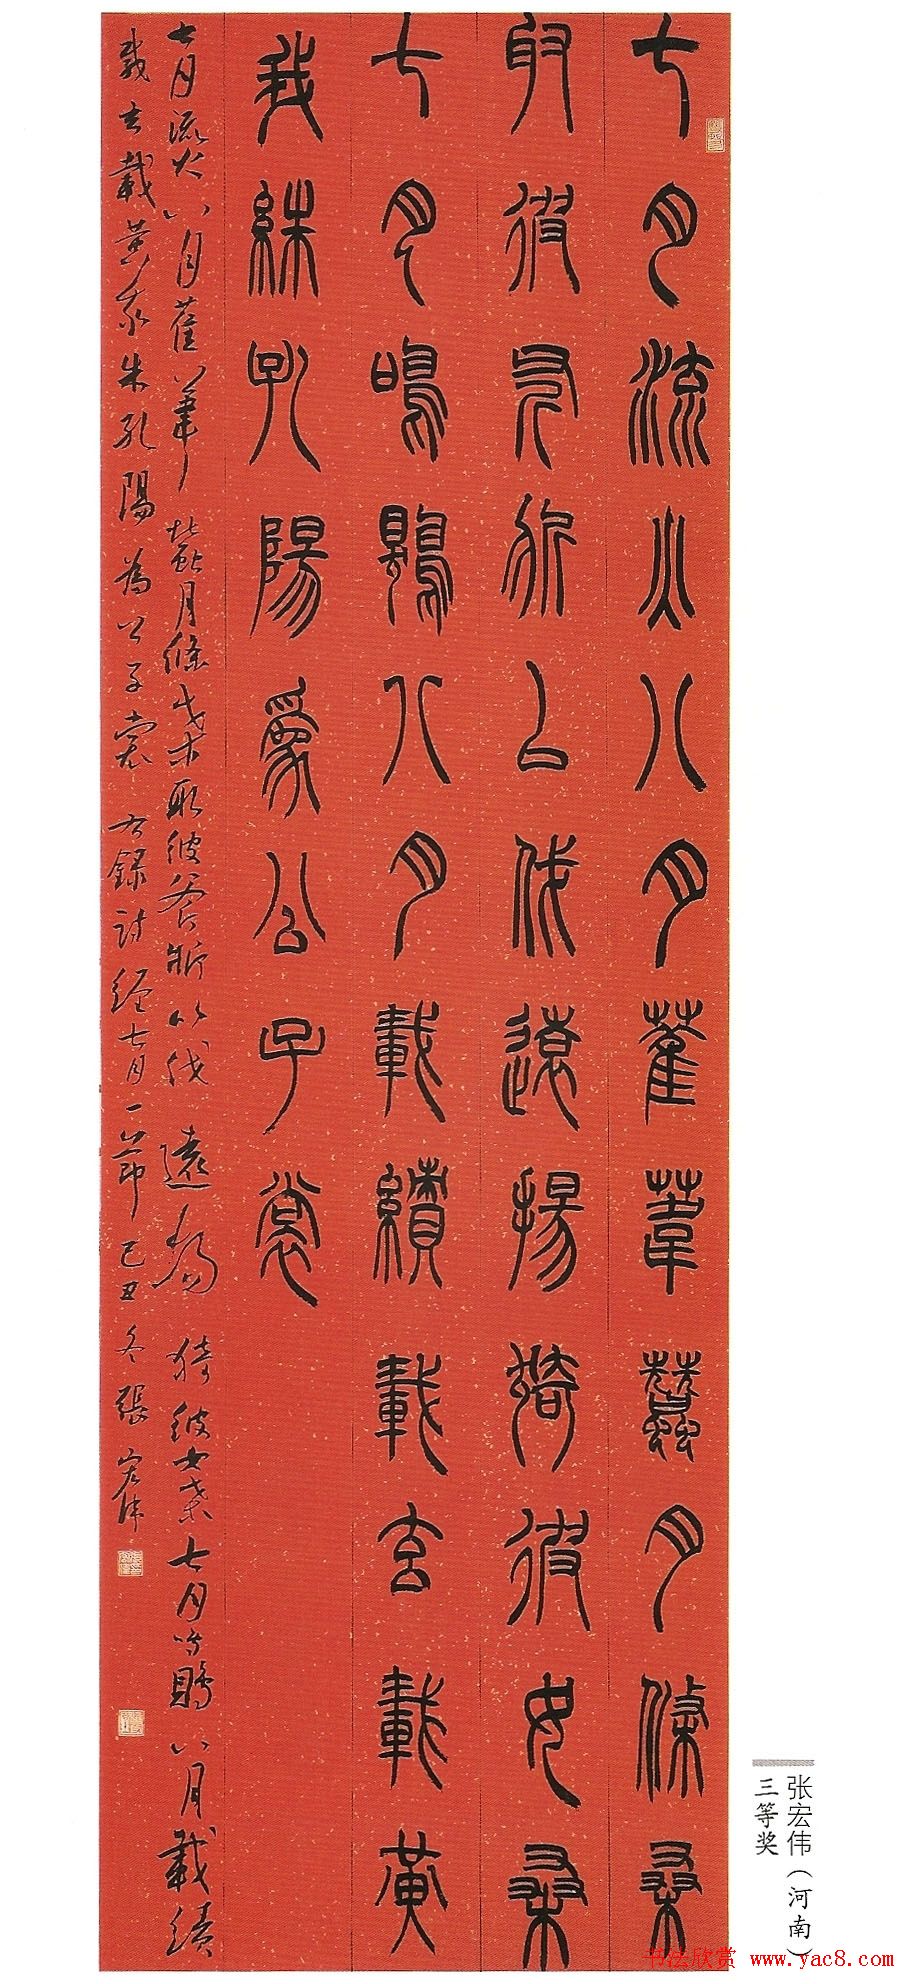 七月流火八月萑葦蠶月條桑
取彼斧斨以伐遠揚猗彼女桑
七月鳴鵙八月載績載玄載黃
我絑孔陽為公子裳
七月流火八月萑葦蠶月條桑取彼斧斨以伐遠揚猗彼女桑七月鳴鵙八月載績
載玄載黃我朱孔陽為公子裳右錄詩經七月一節己丑冬張宏偉
张宏伟（河南）
三等奖
书法欣赏 www.yac8.com